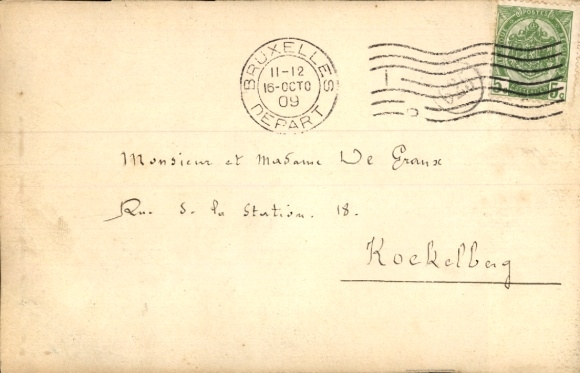 BRUXELLES
11-12
16-OCTO
09
DEPART
5 5c
Monsieur et Madame De Graux
Rue de la Station. 18.
Koekelberg